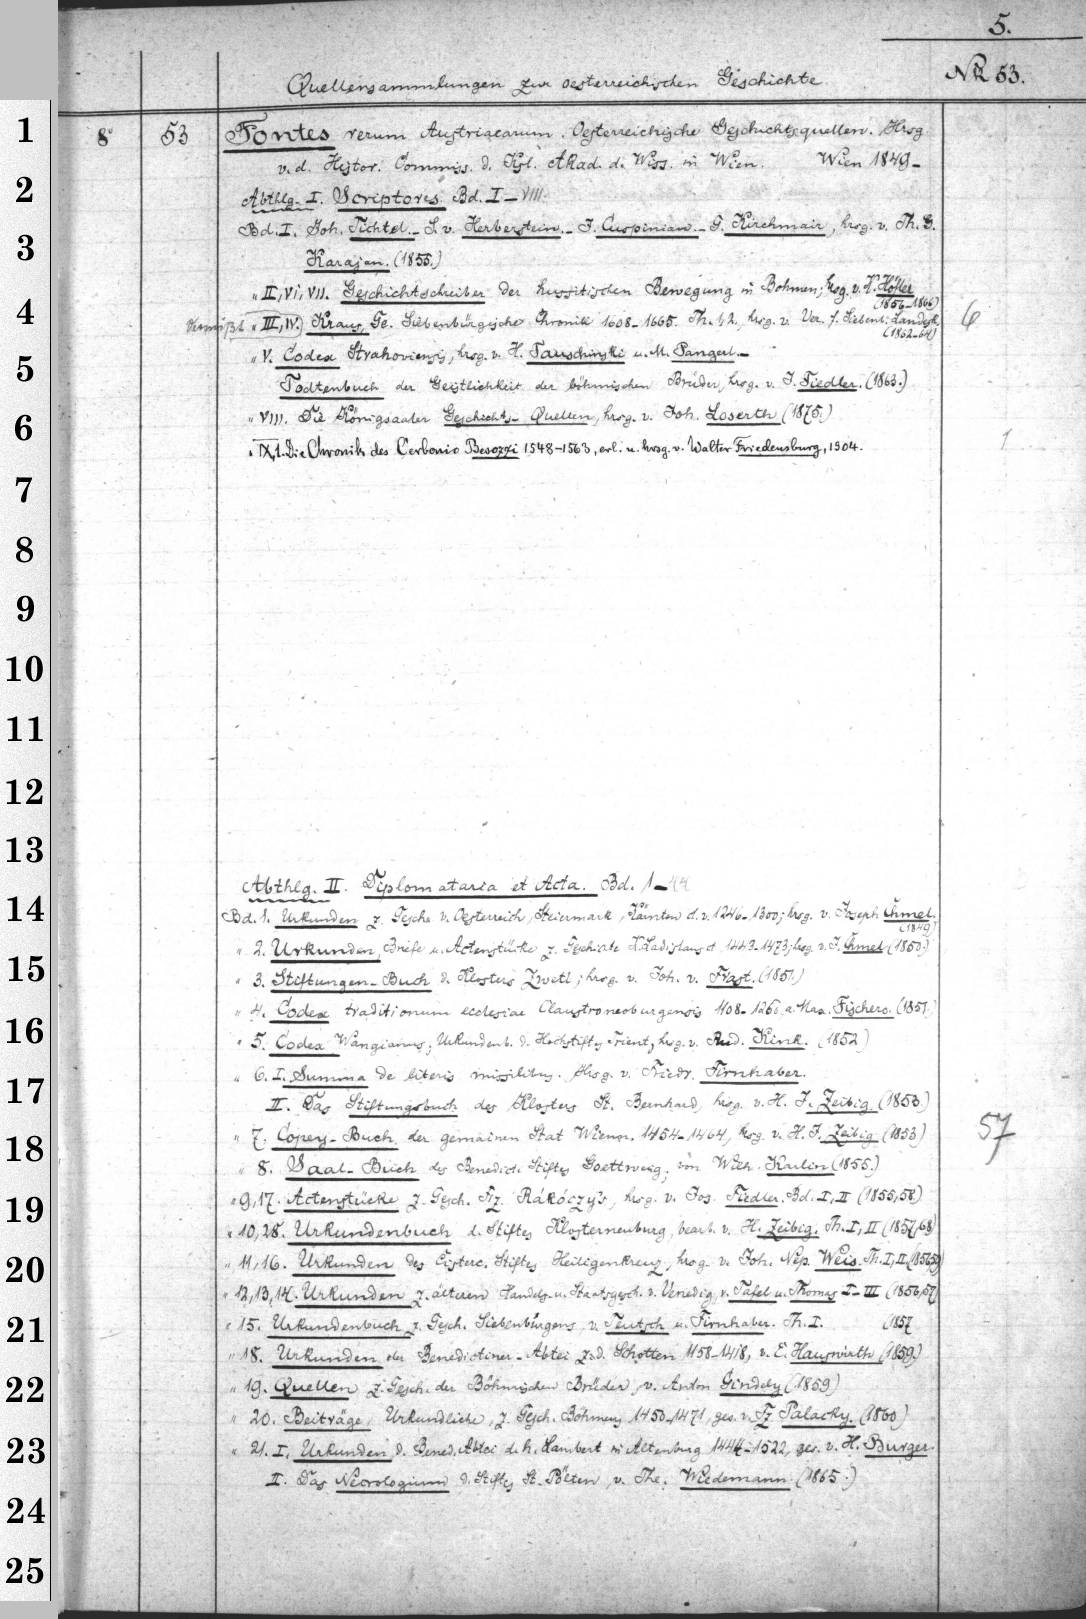 5.
Quellensammlungen zur oesterreichischen Geschichte
NR 53.
8° 53 Fontes rerum Austriacarum. Oesterreichische Geschichtsquellen. Hrsg
v. d. Histor. Commiss. d. Ksl. Akad. d. Wiss. in Wien. Wien 1849–
Abthlg. I. Scriptores Bd. I–VIII
Bd. I. Joh. Tichtel – S. v. Herberstein – J. Cuspinian – G. Kirchmair, hrsg. v. Th. G.
Karajan. (1855.)
" II, VI, VII. Geschichtschreiber der hussitischen Bewegung in Böhmen; hrsg. v. K. Höfler
(1856–1866)
vermißt " III, IV.) Kraus, Ge. Siebenbürgische Chronik 1608–1665. Th. 1,2. hrsg. v. Ver. f. Siebenb. Landesk. 6
(1862–64)
" V. Codex Strahoviensis, hrsg. v. H. Tauschinski u. M. Pangerl –
Todtenbuch der Geistlichkeit der böhmischen Brüder, hrsg. v. J. Fiedler. (1863.)
" VIII. Die Königsaaler Geschichts-Quellen, hrsg. v. Joh. Loserth (1875.)
" IX,1. Die Chronik des Cerbonio Besozzi 1548–1563, erl. u. hrsg. v. Walter Friedensburg, 1904. 1
Abthlg. II. Diplomataria et Acta. Bd. 1–44
Bd. 1. Urkunden z. Gesch. v. Oesterreich, Steiermark, Kärnten d. v. 1246–1300; hrsg. v. Joseph Chmel.
(1849)
" 2. Urkunden, Briefe u. Actenstücke z. Geschichte K. Ladislaus d. 1443–1473; hrsg. v. J. Chmel (1850.)
" 3. Stiftungen-Buch d. Klosters Zwetl; hrsg. v. Joh. v. Frast. (1851.)
" 4. Codex traditionum ecclesiae Claustroneoburgensis 1108–1260 a. Max. Fischero. (1851.)
" 5. Codex Wangianus; Urkundenb. d. Hochstiftes Trient, hrsg. v. Rud. Kink. (1852)
" 6. I. Summa de literis missilibus. Hrsg. v. Friedr. Firnhaber.
II. Das Stiftungsbuch des Klosters St. Bernhard, hrsg. v. H. J. Zeibig. (1853)
" 7. Copey-Buch der gemainen Stat Wienn. 1454–1464, hrsg. v. H. J. Zeibig (1853) 57
" 8. Saal-Buch des Benedict. Stiftes Goettweig; von Wilh. Karlin (1855.)
" 9,17. Actenstücke z. Gesch. Frz. Rákóczy's, hrsg. v. Jos. Fiedler. Bd. I, II (1855,58)
" 10,28. Urkundenbuch d. Stiftes Klosterneuburg, bearb. v. H. Zeibig. Th. I, II (1857,68)
" 11,16. Urkunden des Cisterc. Stiftes Heiligenkreuz, hrsg. v. Joh. Nep. Weis. Th. I, II (1856,59)
" 12,13,14. Urkunden z. älteren Handels- u. Staatsgesch. v. Venedig, v. Tafel u. Thomas I–III (1856,57)
" 15. Urkundenbuch z. Gesch. Siebenbürgens, v. Teutsch u. Firnhaber. Th. I. (1857
" 18. Urkunden der Benedictiner-Abtei z. d. Schotten 1158–1418, v. E. Hauswirth (1859.)
" 19. Quellen z. Gesch. der Böhmischen Brüder, v. Anton Gindely (1859)
" 20. Beiträge, Urkundliche, z. Gesch. Böhmens 1450–1471, ges. v. Fz. Palacky. (1860)
" 21. I. Urkunden d. Bened. Abtei d. h. Lambert in Altenburg 1144–1522, ges. v. H. Burger.
II. Das Necrologium d. Stiftes St. Pölten, v. The. Wiedemann (1865.)
1
2
3
4
5
6
7
8
9
10
11
12
13
14
15
16
17
18
19
20
21
22
23
24
25